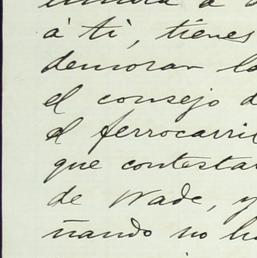 á ti, tienes
demorar la
el consejo d
el ferrocarril
que contesta
de Wade, y
ñando no ha